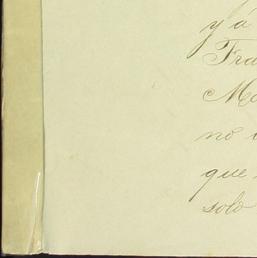 y á
Fra
Ma
no
que
solo